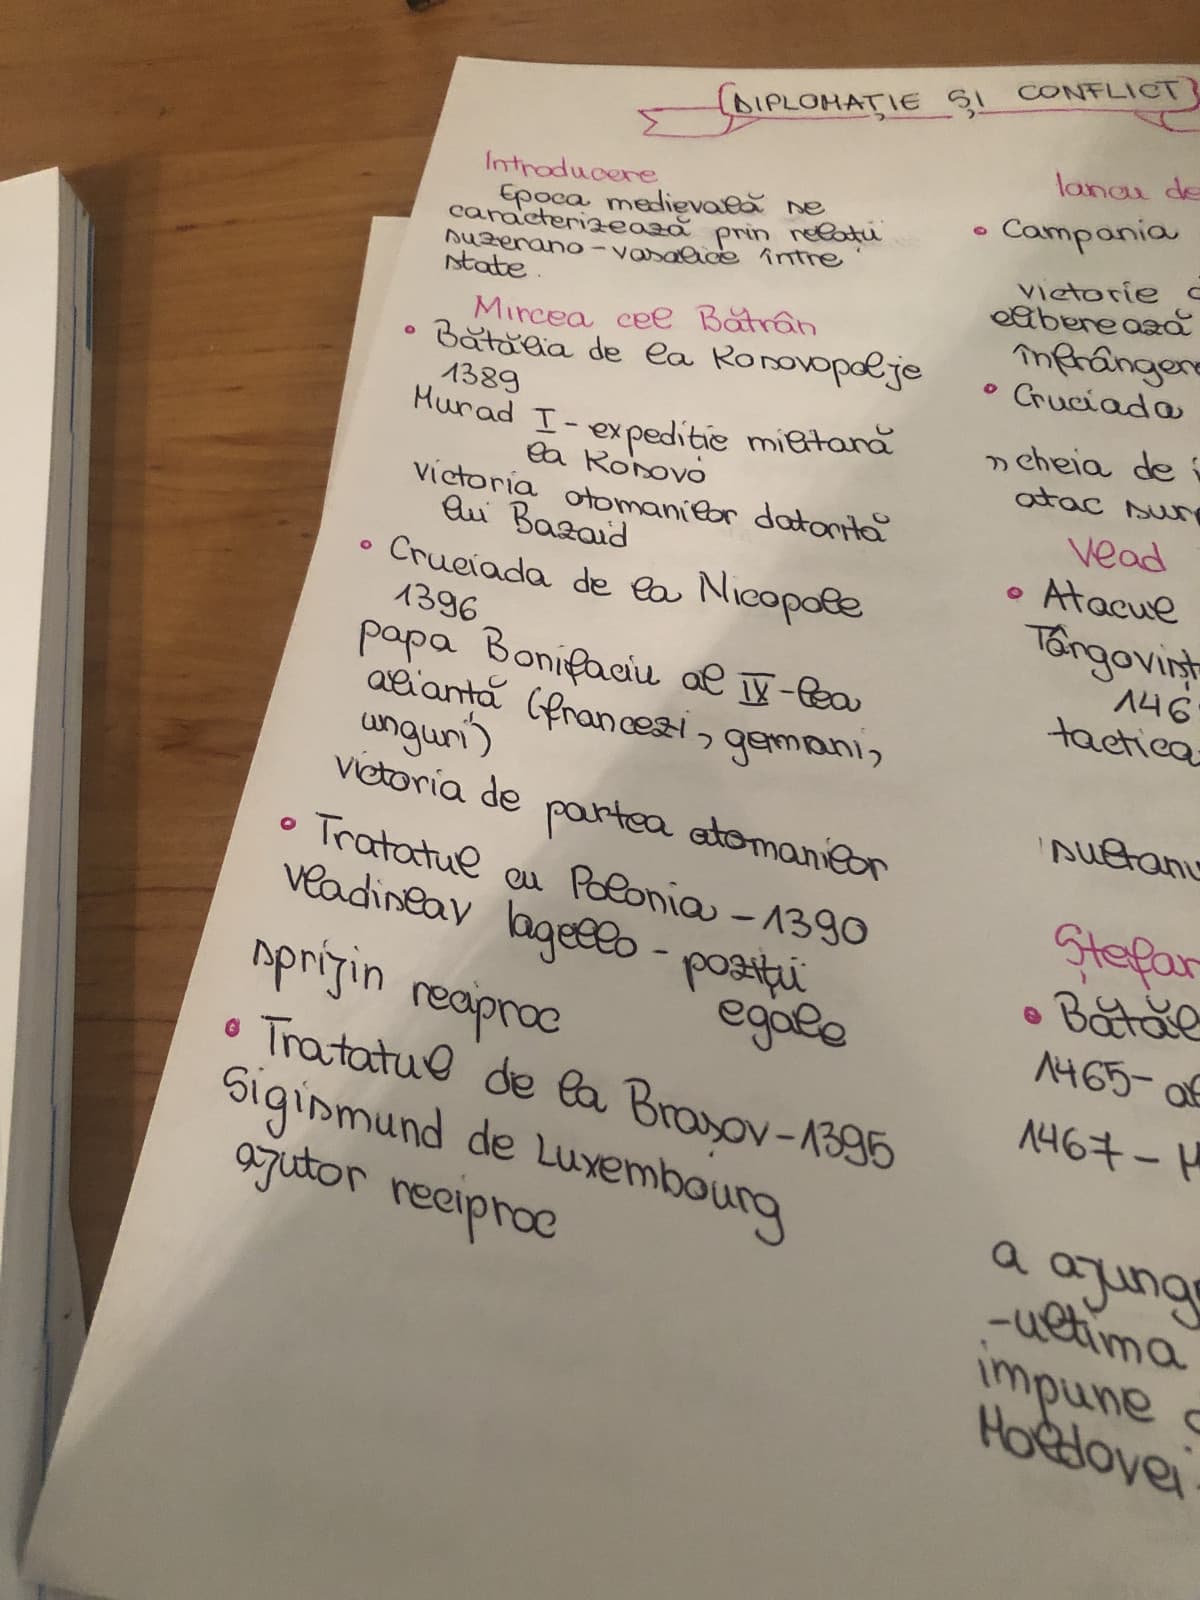 DIPLOMAȚIE ȘI CONFLICT
Introducere
Epoca medievală se
caracterizează prin relații
suzerano-vasalice între
state.
Mircea cel Bătrân
• Bătălia de la Kosovopolje
1389
Murad I - expediție militară
la Kosovo
victoria otomanilor datorită
lui Bazaid
• Cruciada de la Nicopole
1396
papa Bonifaciu al IX-lea
alianță (francezi, germani,
unguri)
victoria de partea otomanilor
• Tratatul cu Polonia - 1390
Vladislav Iagello - poziții
egale
sprijin reciproc
• Tratatul de la Brașov - 1395
Sigismund de Luxembourg
ajutor reciproc
Iancu de
• Campania
victorie
eliberează
înfrânger
• Cruciada
cheia de
atac sur
Vlad
• Atacul
Târgovișt
146
tactica
sultanu
Ștefan
• Bătăl
1465-
1467 -
a ajung
-ultima
impune
Moldovei